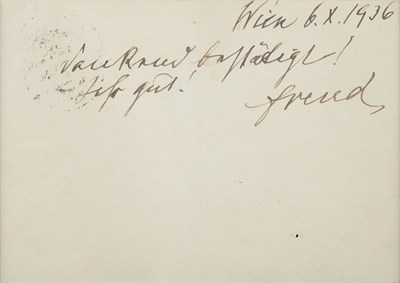 Wien 6.X.1936
Dankend bestätigt!
Sehr gut!
Freud